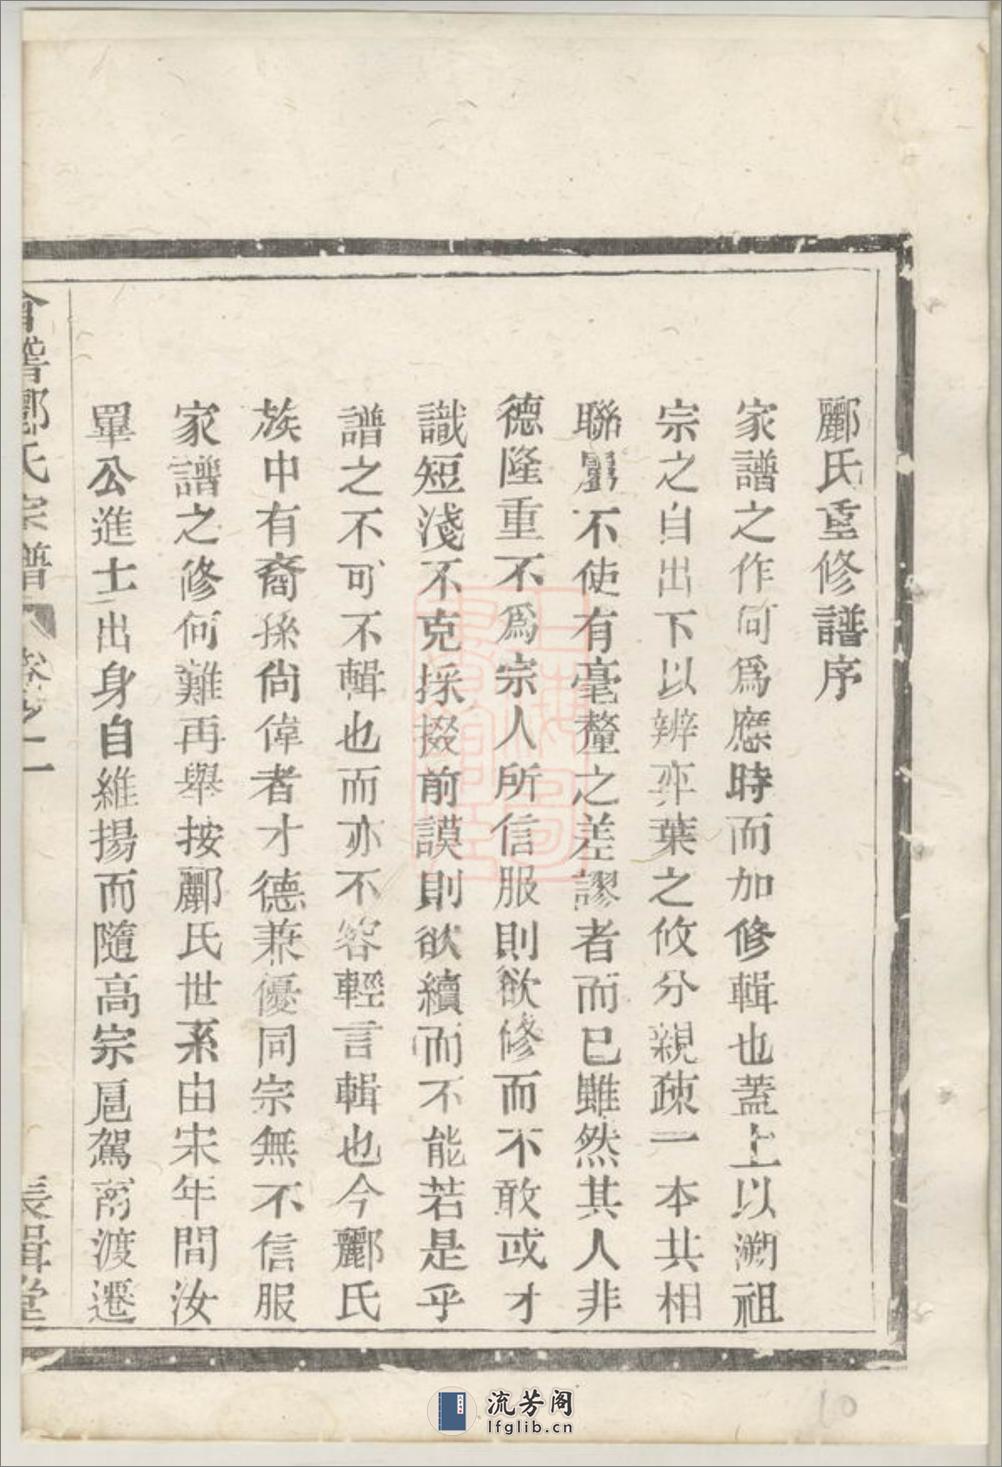 酈氏重修譜序
家譜之作何爲應時而加修輯也蓋上以溯祖
宗之自出下以辨弈葉之攸分親疎一本共相
聯屬不使有毫釐之差謬者而已雖然其人非
德隆重不爲宗人所信服則欲修而不敢或才
識短淺不克採掇前謨則欲續而不能若是乎
譜之不可不輯也而亦不容輕言輯也今酈氏
族中有裔孫尙偉者才德兼優同宗無不信服
家譜之修何難再舉按酈氏世系由宋年間汝
單公進士出身自維揚而隨高宗扈駕南渡遷
會稽酈氏宗譜 卷之一 長輯堂
流芳阁
lfglib.cn
10